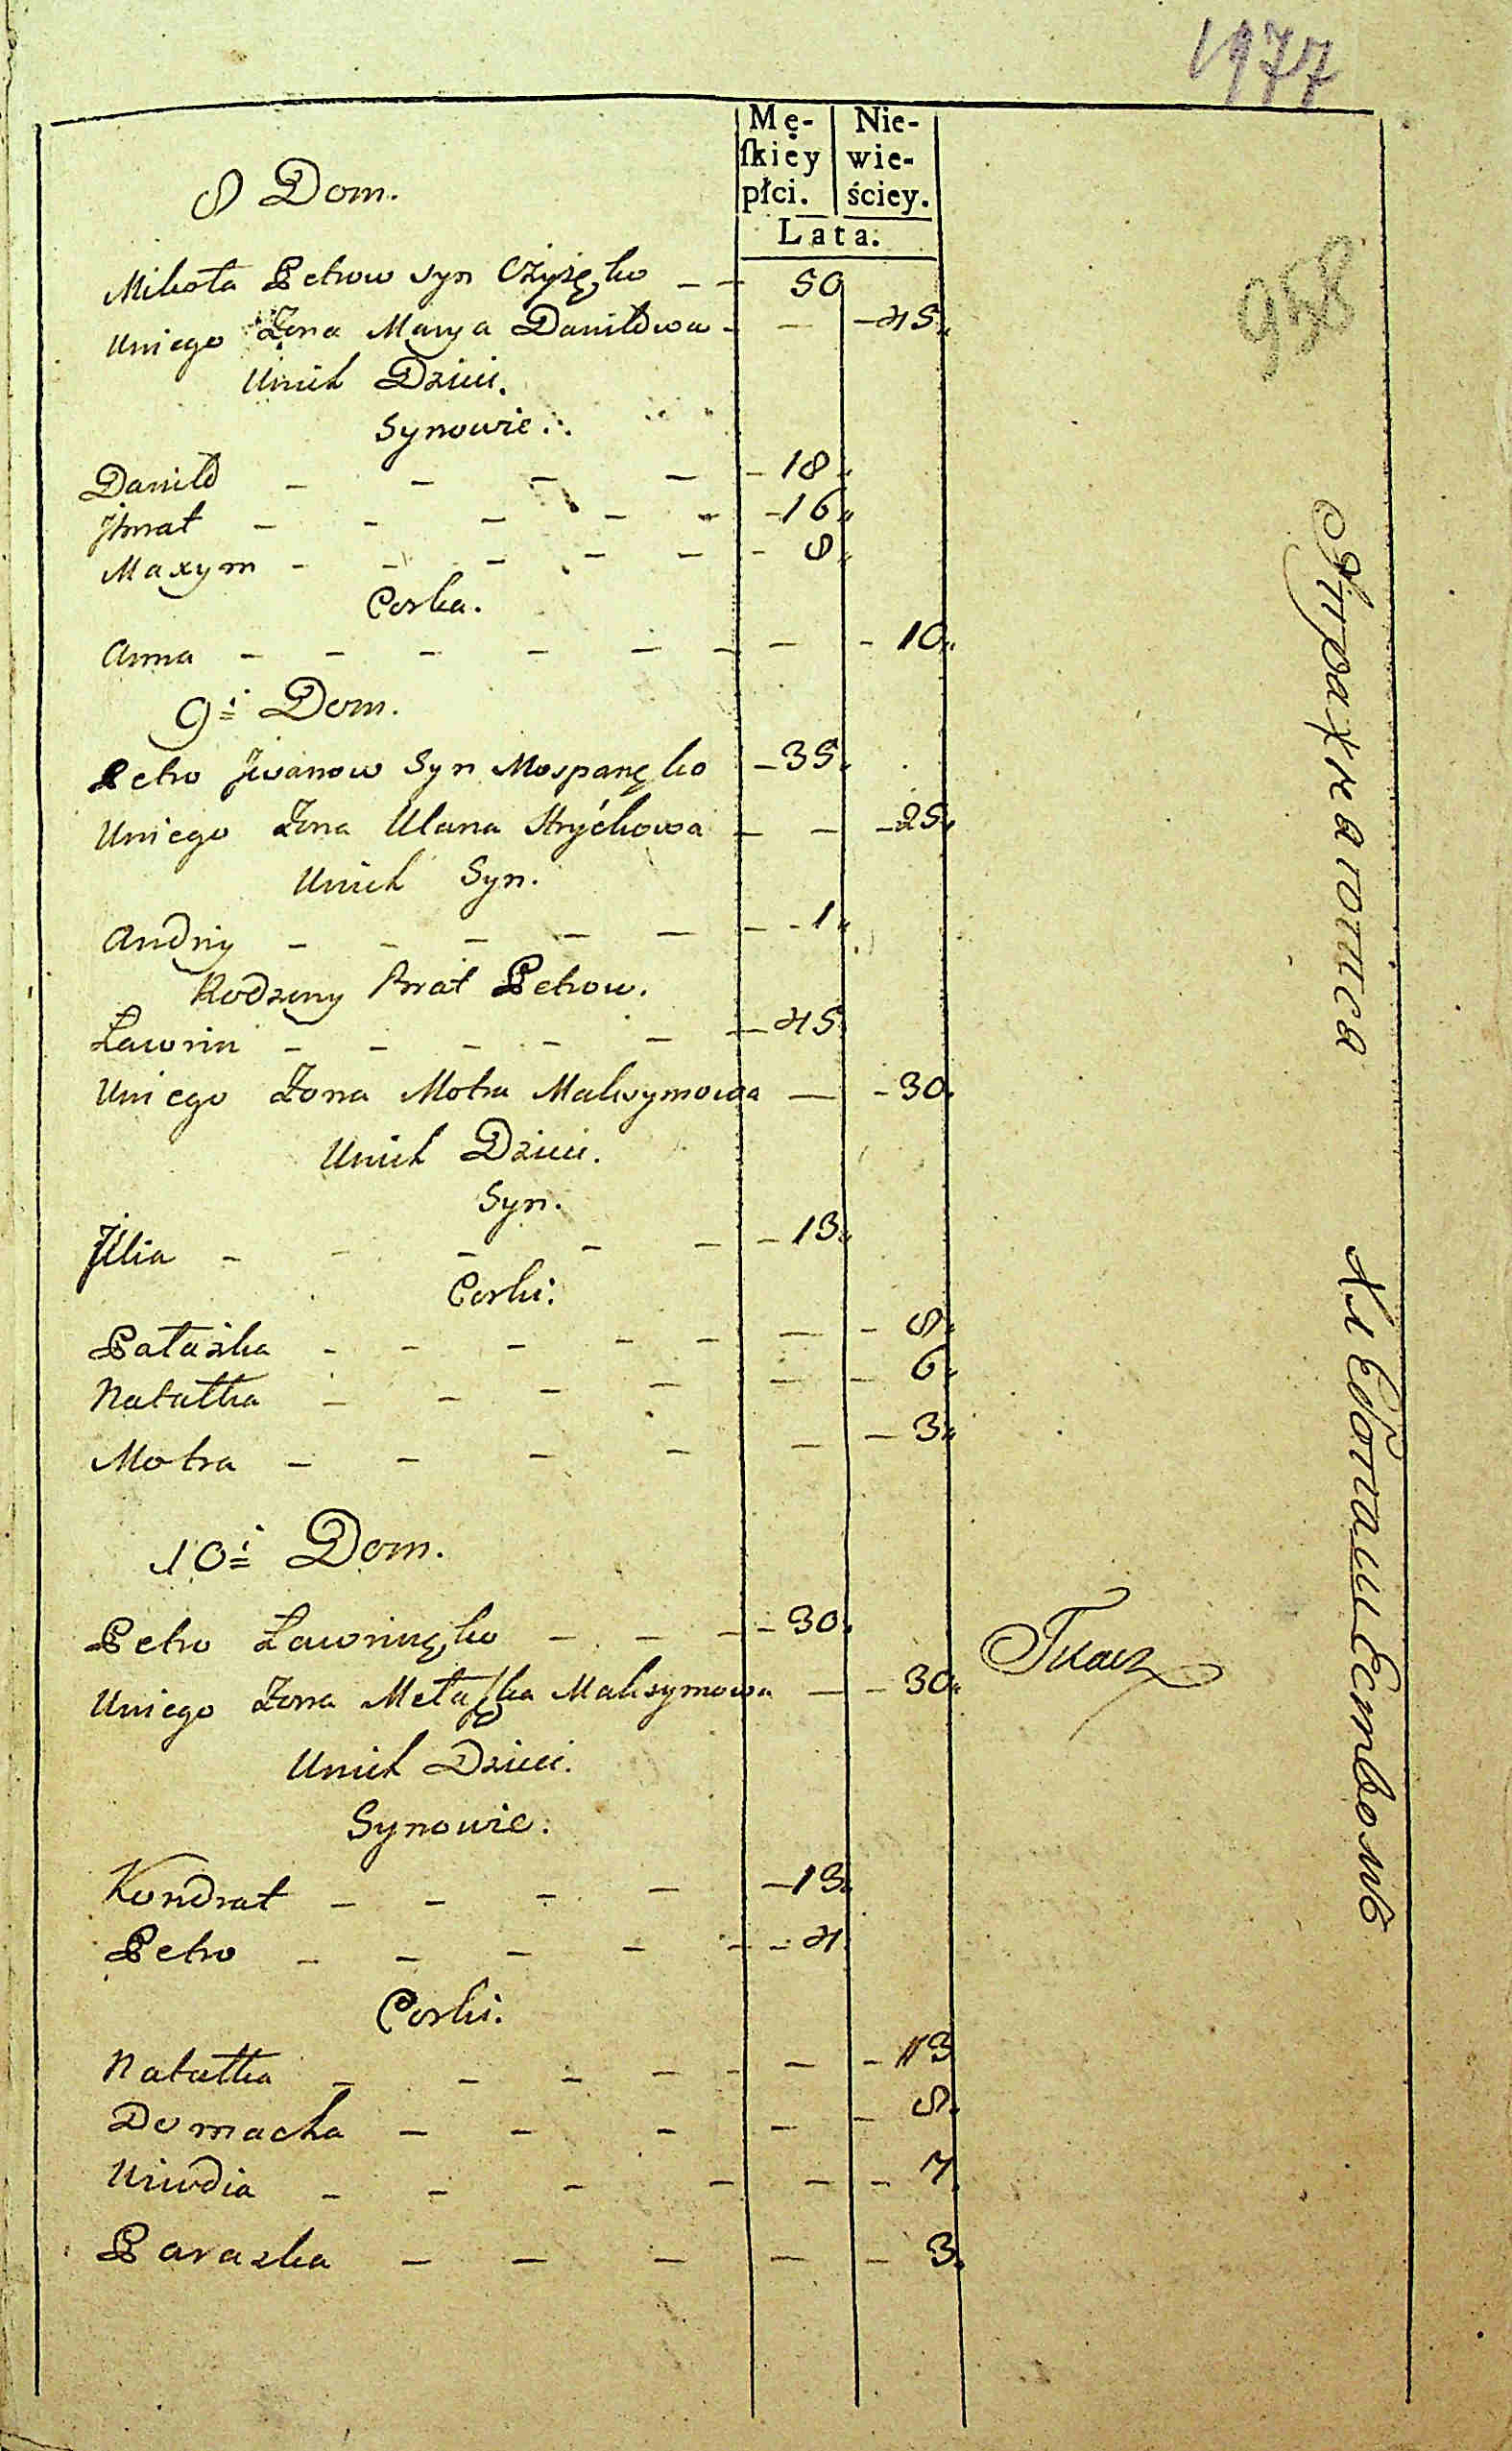 1977
Mę- Nie-
ſkiey wie-
płci. ściey.
Lata.
958
8 Dom.
Mikoła Petrow syn Czyżęko — — 50
Uniego Żona Marya Daniłowa - — — 45
Unich Dzieci.
Synowie.
Daniło — — — — — 18
Ihnat — — — — — 16
Maxym — — — — — 8
Corka.
Anna — — — — — — — 10
9i Dom.
Petro Jwanow Syn Mospanęko — 35
Uniego Żona Ulana Hryćkowa — — — 25
Unich Syn.
Andriy — — — — — — 1
Rodzony Brat Petrow.
Ławrin — — — — — 45
Uniego Żona Motra Maksymowa — — 30
Unich Dzieci.
Syn.
Jllia — — — — — — 13
Corki.
Pałazka — — — — — — — 8
Natałka — — — — — — 6
Motra — — — — — — 3
10i Dom.
Petro Ławrinęko — — — — 30
Ткач
Uniego Żona Metaſka Maksymowa — — 30
Unich Dzieci.
Synowie.
Kondrat — — — — — 13
Petro — — — — — — 4
Corki.
Natałka — — — — — — — 13
Domacha — — — — — 8
Uiwdia — — — — — — 7
Paraska — — — — — 3